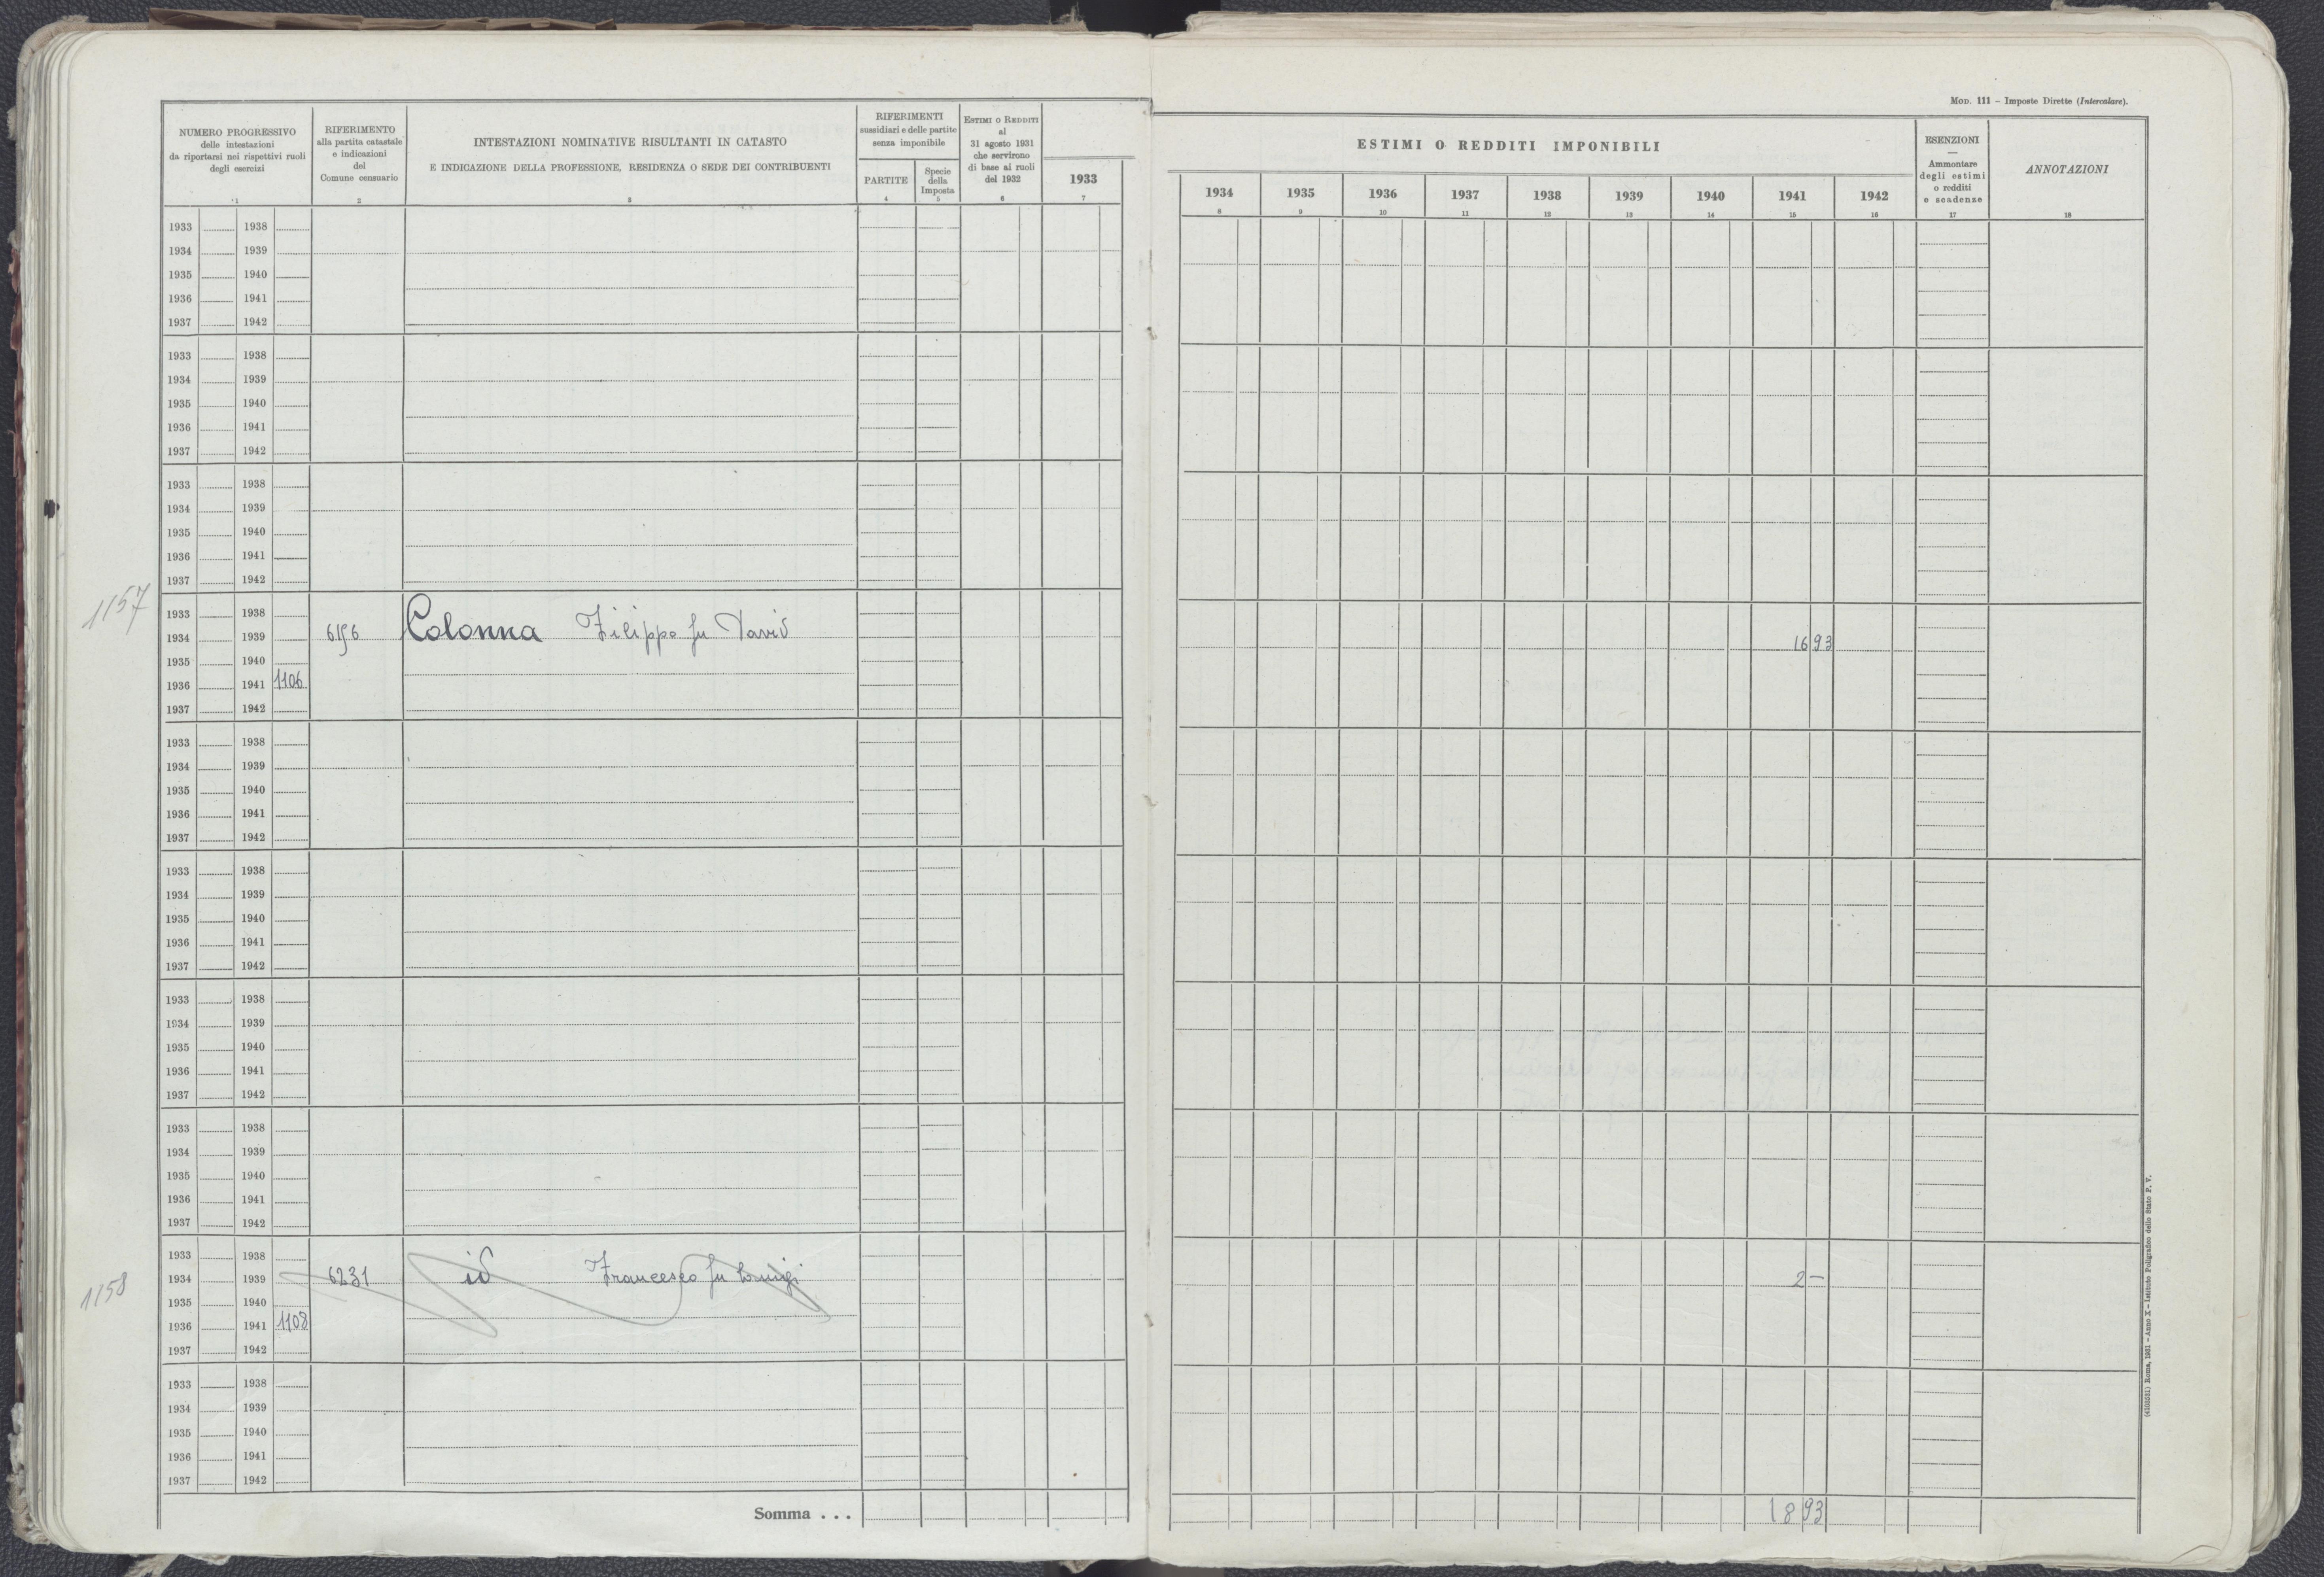 MOD. 111 – Imposte Dirette (Intercalare).
NUMERO PROGRESSIVO
delle intestazioni
da riportarsi nei rispettivi ruoli
degli esercizi
1
RIFERIMENTO
alla partita catastale
e indicazioni
del
Comune censuario
2
INTESTAZIONI NOMINATIVE RISULTANTI IN CATASTO
E INDICAZIONE DELLA PROFESSIONE, RESIDENZA O SEDE DEI CONTRIBUENTI
3
RIFERIMENTI
sussidiari e delle partite
senza imponibile
PARTITE
4
Specie
della
Imposta
5
ESTIMI O REDDITI
al
31 agosto 1931
che servirono
di base ai ruoli
del 1932
6
1933
7
ESTIMI O REDDITI IMPONIBILI
1934 1935 1936 1937 1938 1939 1940 1941 1942
8 9 10 11 12 13 14 15 16
ESENZIONI
—
Ammontare
degli estimi
o redditi
e scadenze
17
ANNOTAZIONI
18
1933 1938
1934 1939
1935 1940
1936 1941
1937 1942
1933 1938
1934 1939
1935 1940
1936 1941
1937 1942
1933 1938
1934 1939
1935 1940
1936 1941
1937 1942
1157
1933 1938
1934 1939 6196 Colonna Filippo fu David 16 93
1935 1940
1936 1941 1106
1937 1942
1933 1938
1934 1939
1935 1940
1936 1941
1937 1942
1933 1938
1934 1939
1935 1940
1936 1941
1937 1942
1933 1938
1934 1939
1935 1940
1936 1941
1937 1942
1933 1938
1934 1939
1935 1940
1936 1941
1937 1942
1158
1933 1938
1934 1939 6231 id Francesco fu Luigi 2 –
1935 1940
1936 1941 1108
1937 1942
1933 1938
1934 1939
1935 1940
1936 1941
1937 1942
Somma . . . 18 93
(4102531) Roma, 1931 – Anno X – Istituto Poligrafico dello Stato P. V.